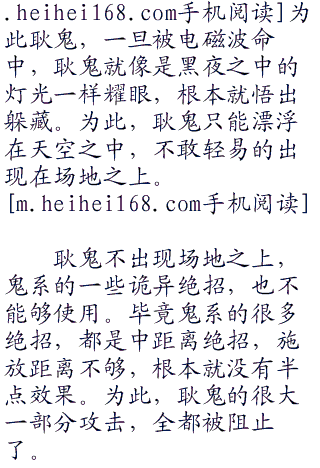 .heihei168.com手机阅读]为
此耿鬼，一旦被电磁波命
中，耿鬼就像是黑夜之中的
灯光一样耀眼，根本就悟出
躲藏。为此，耿鬼只能漂浮
在天空之中，不敢轻易的出
现在场地之上。
[m.heihei168.com手机阅读]
耿鬼不出现场地之上，
鬼系的一些诡异绝招，也不
能够使用。毕竟鬼系的很多
绝招，都是中距离绝招，施
放距离不够，根本就没有半
点效果。为此，耿鬼的很大
一部分攻击，全都被阻止
了。